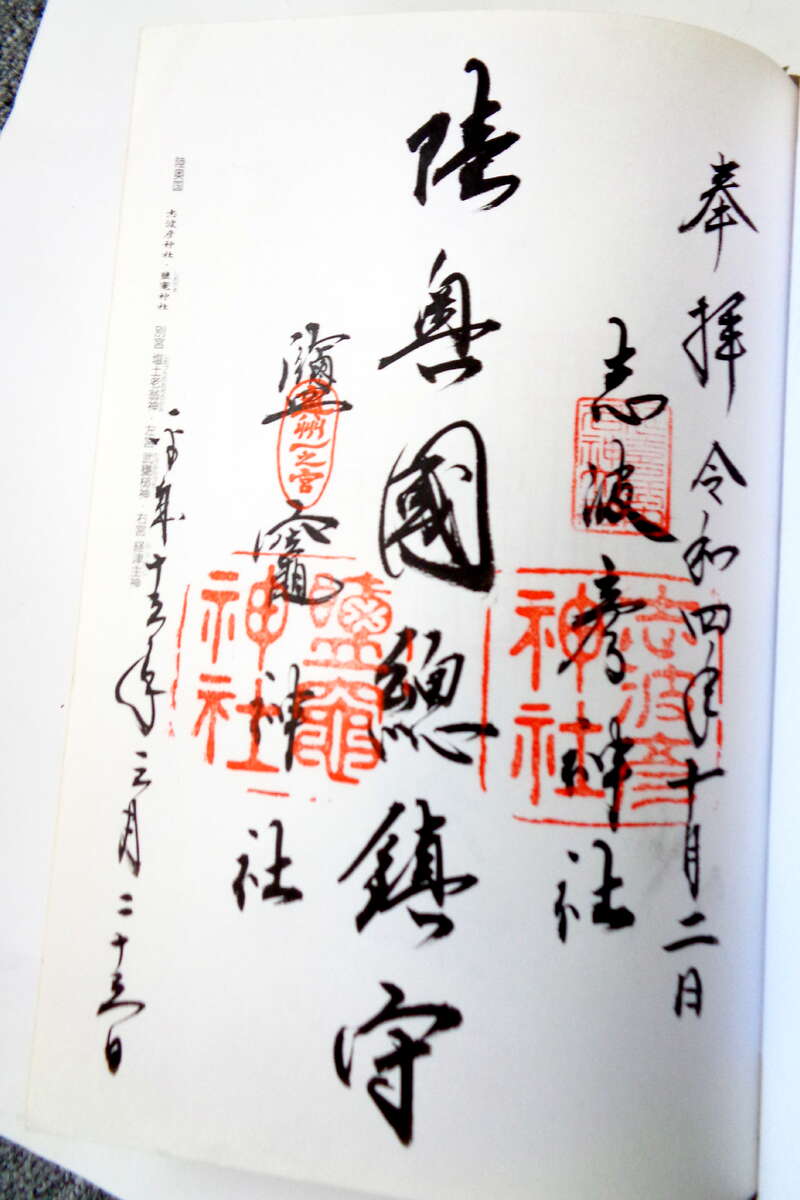 奉拝 令和四年十月二日
志波彦神社
志波彦神社
陸奥國總鎮守
鹽竈神社
奥州一之宮
鹽竈神社
平成十三年三月二十三日
陸奥国 志波彦神社・鹽竈神社 別宮 塩土老翁神・左宮 武甕槌神・右宮 経津主神